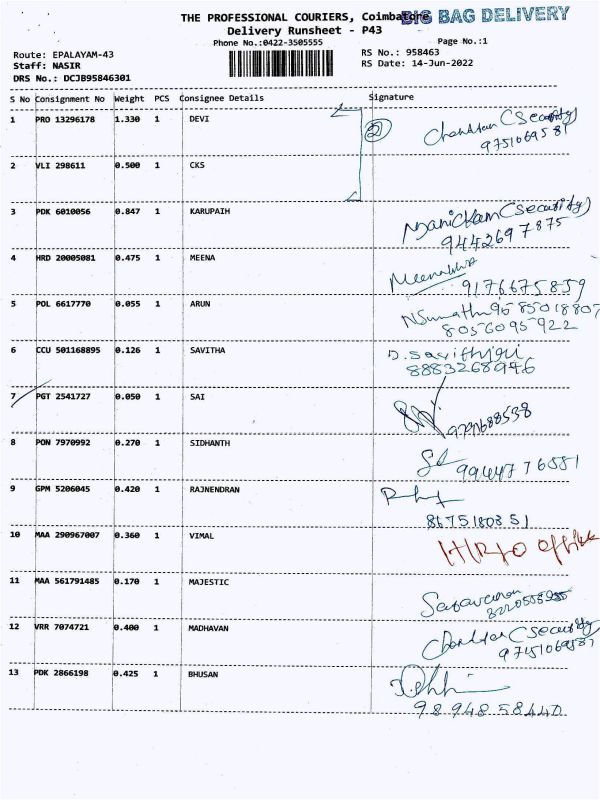 THE PROFESSIONAL COURIERS, Coimbatore BIG BAG DELIVERY
Delivery Runsheet - P43
Phone No.:0422-3505555 Page No.:1
Route: EPALAYAM-43 RS No.: 958463
Staff: NASIR RS Date: 14-Jun-2022
DRS No.: DCJB95846301
S No Consignment No Weight PCS Consignee Details Signature
1 PRO 13296178 1.330 1 DEVI 2 (Security)
2 VLI 298611 0.500 1 CKS
3 PDK 6010056 0.847 1 KARUPAIH Manickam (Security)
9442697875
4 HRD 20005081 0.475 1 MEENA
9176675859
5 POL 6617770 0.055 1 ARUN
8056095922
6 CCU 501168895 0.126 1 SAVITHA
8883268946
7 PGT 2541727 0.050 1 SAI
8 PON 7970992 0.270 1 SIDHANTH
9944776581
9 GPM 5206045 0.420 1 RAJNENDRAN
8675180351
10 MAA 290967007 0.360 1 VIMAL office
11 MAA 561791485 0.170 1 MAJESTIC Saravanan
12 VRR 7074721 0.400 1 MADHAVAN (Security)
13 PDK 2866198 0.425 1 BHUSAN
9894858440